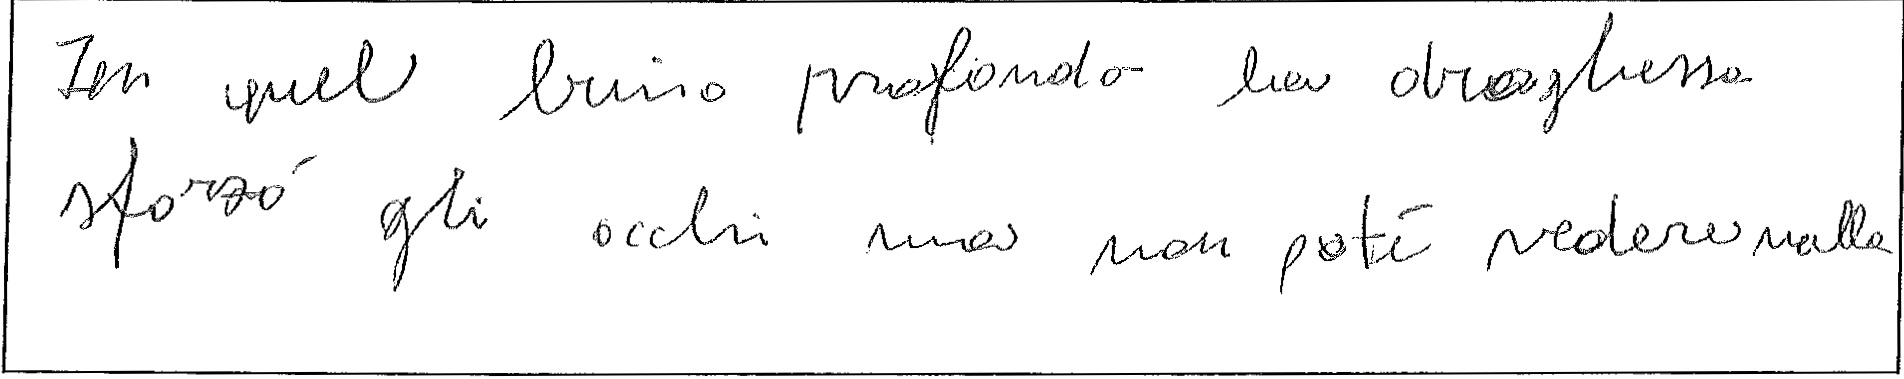 In quel buio profondo la draghessa
sforzó gli occhi ma non poté vedere nulla